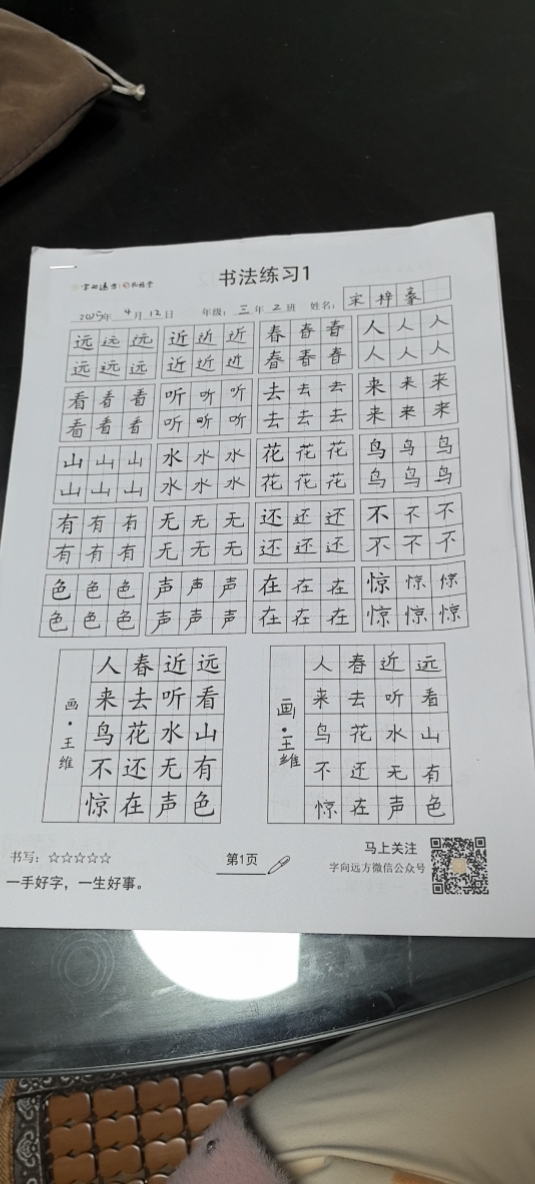 字向远方
书法练习1
2025年 4月12日 年级：三年2班 姓名：宋梓豪
远远远 近近近 春春春 人人人
远远远 近近近 春春春 人人人
看看看 听听听 去去去 来来来
看看看 听听听 去去去 来来来
山山山 水水水 花花花 鸟鸟鸟
山山山 水水水 花花花 鸟鸟鸟
有有有 无无无 还还还 不不不
有有有 无无无 还还还 不不不
色色色 声声声 在在在 惊惊惊
色色色 声声声 在在在 惊惊惊
画·王维
人春近远
来去听看
鸟花水山
不还无有
惊在声色
画·王维
人春近远
来去听看
鸟花水山
不还无有
惊在声色
书写：☆☆☆☆☆
一手好字，一生好事。
第1页
马上关注
字向远方微信公众号